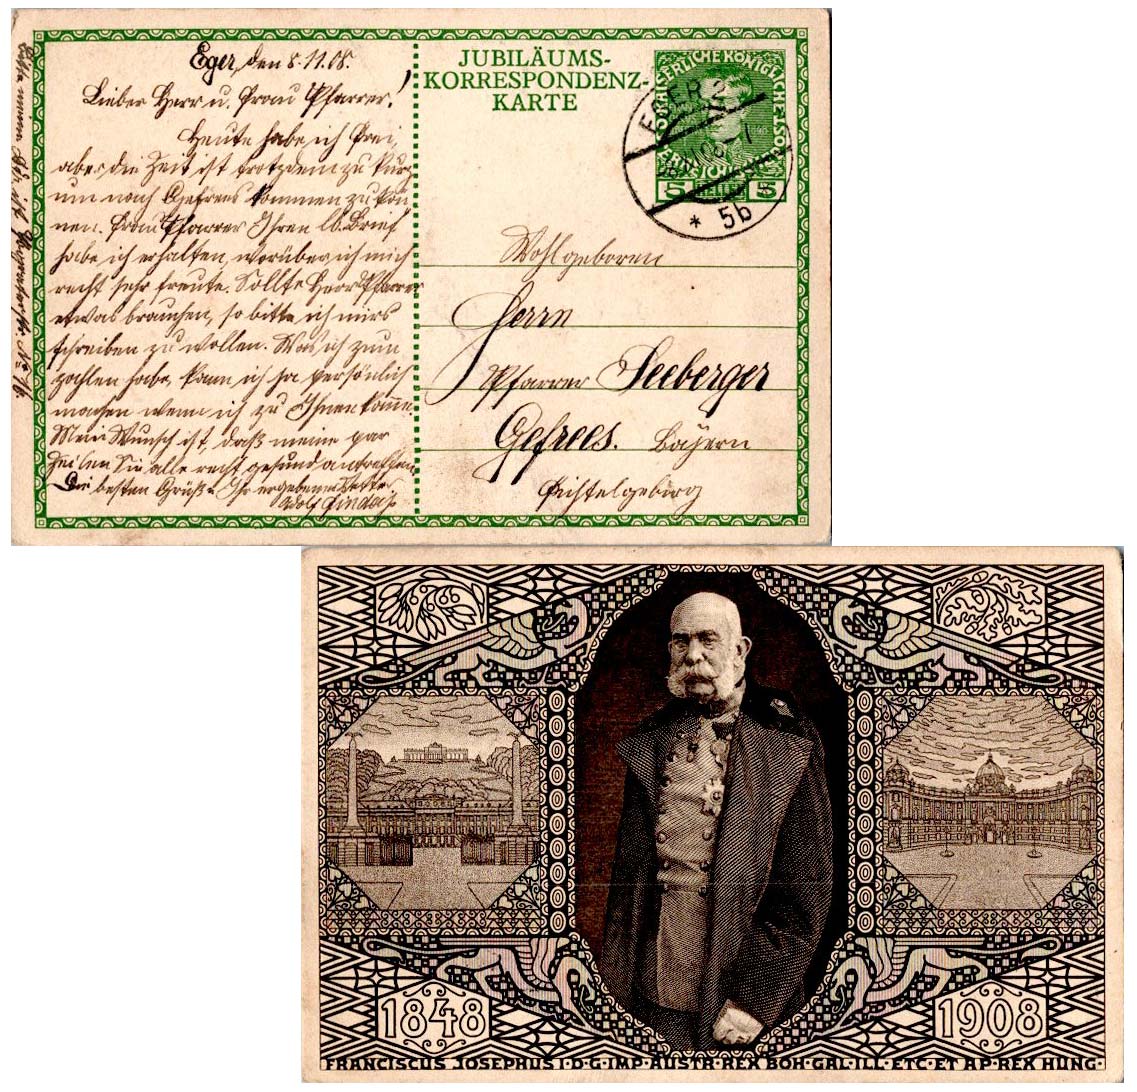 Eger, den 8.11.08.
Lieber Herr u. Frau Pfarrer!
Heute habe ich frei,
aber die Zeit ist trotzdem zu kurz
um nach Gefrees kommen zu kön
nen. Frau Pfarrer Ihren lb. Brief
habe ich erhalten, worüber ich mich
recht sehr freute. Sollte Herr Pfarrer
etwas brauchen, so bitte ich mirs
schreiben zu wollen. Was ich zum
zahlen habe, kann ich ja persönlich
machen wenn ich zu Ihnen komme.
Mein Wunsch ist, daß meine par
Zeilen Sie alle recht gesund antreffen.
Die besten Grüße Ihr ergebener Vetter
Adolf
No 16
JUBILÄUMS-
KORRESPONDENZ-
KARTE
KAISERLICHE KÖNIGLICHE
5 5
EGER 2
* 5b *
Wohlgeboren
Herrn
Pfarrer Seeberger
Gefrees. Bayern
Fichtelgebirg
1848
1908
FRANCISCUS JOSEPHUS·I·D·G·IMP·AUSTR·REX BOH·GAL·ILL·ETC·ET AP·REX HUNG·